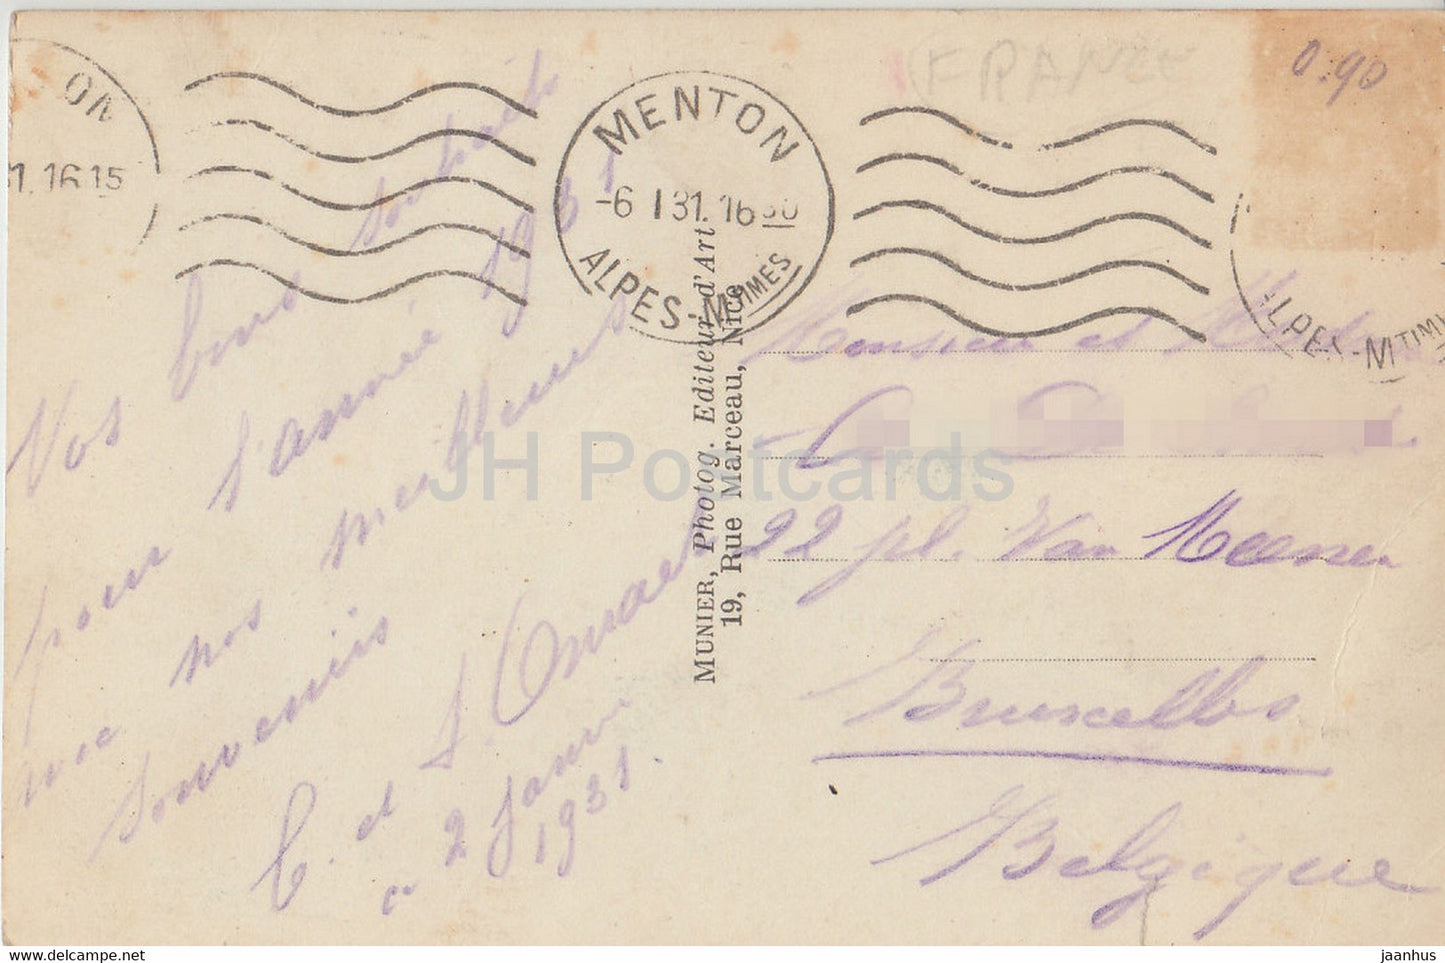 ON
31.1615
MENTON
-6 I 31. 16 30
ALPES-MTIMES
ALPES-MTIM
FRANCE
0.90
Nos bons souhaits
pour l'année 1931
avec nos meilleurs
souvenirs
C. et J.
2 Janvier
1931.
MUNIER, Photog. Editeur d'Art
19, Rue Marceau, Nice
Monsieur et Madame
22 pl. Van Meenen
Bruxelles
Belgique
JH Postcards
delcampe.net
jaanhus